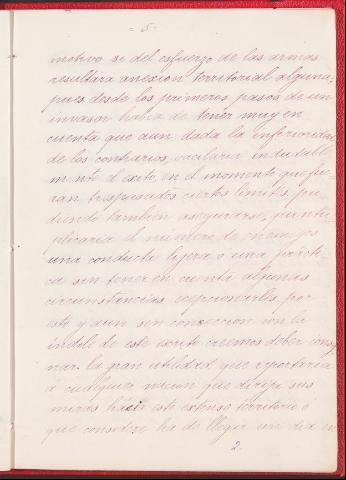 - 5 -
motivo si del esfuerzo de las armas
resultará anexion territorial alguna,
pues desde los primeros pasos de un
invasor habia de tener muy en
cuenta que aun dada la inferioridad
de los contrarios, vacilaria indudable
mente el éxito, en el momento que fue
ran traspasados ciertos limites, pu
diendo tambien asegurarse, quintu
plicaria el número de enemigos
una conducta lijera ó una prácti
ca sin tener en cuenta algunas
circunstancias escepcionales por
esto y aun sin conexion con la
indole de este escrito creemos deber consig
nar la gran utilidad que reportaria
á cualquier nacion que dirija sus
miras hácia este extenso territorio ó
que considere ha de llegar un dia en
2.